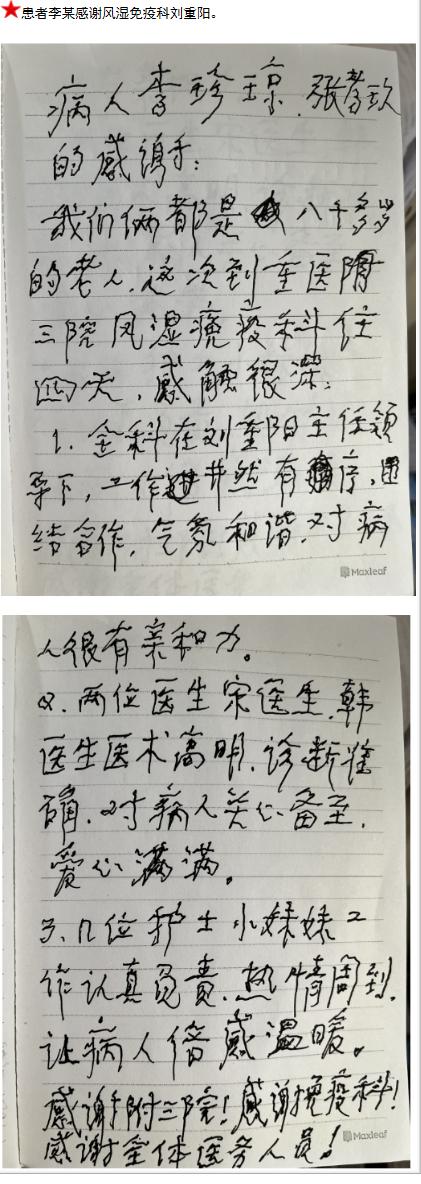 患者李某感谢风湿免疫科刘重阳。
病人李珍琼.张孝玖
的感谢手:
我们俩都是八十多岁
的老人.这次到重医附
三院风湿免疫科住
四天,感触很深:
1.全科在刘重阳主任领
导下,工作井然有序,团
结合作.气氛和谐.对病
Maxleaf
人很有亲和力。
2.两位医生宋医生.韩
医生医术高明.诊断准
确.对病人关心备至.
爱心满满。
3.几位护士小妹妹工
作认真负责.热情周到.
让病人倍感温暖。
感谢附三院!感谢免疫科!
感谢全体医务人员!
Maxleaf